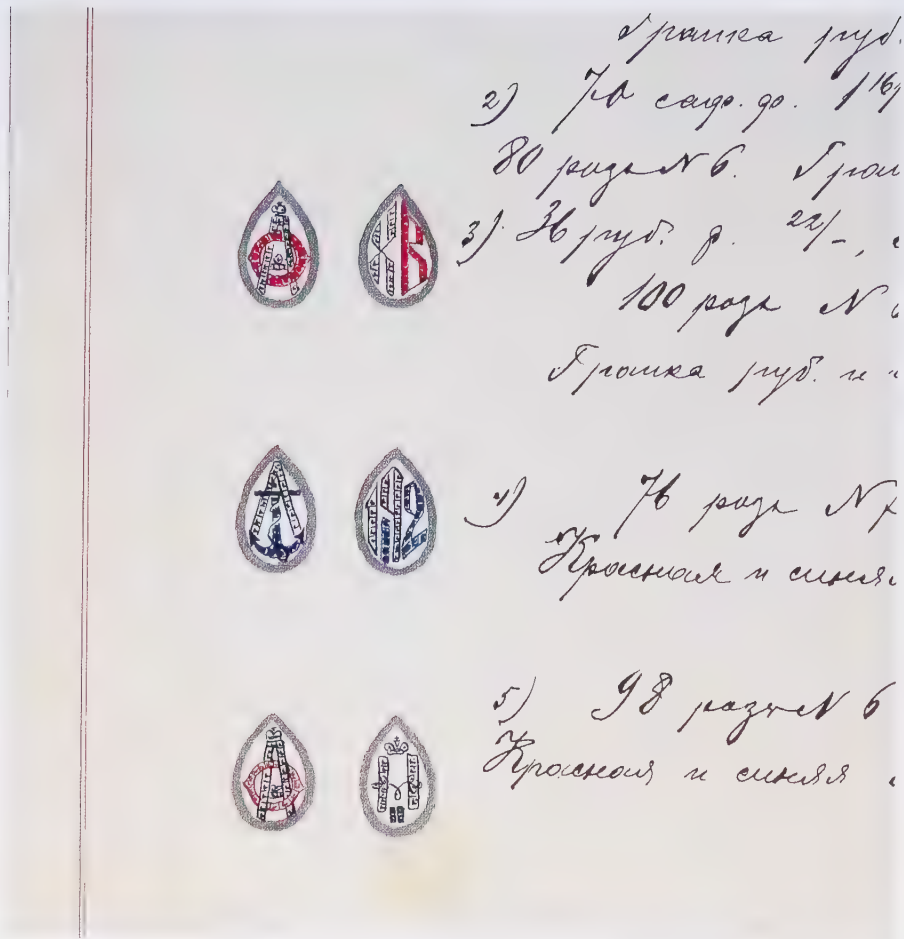 Грашка руб.
2) 76 сапф. др. 1 16/
80 розъ N 6. Гран
3) 36 руб. др. 22/-,
100 розъ N
Грашка руб. и
4) 76 розъ N
Красная и синяя
5) 98 розъ N 6
Красная и синяя